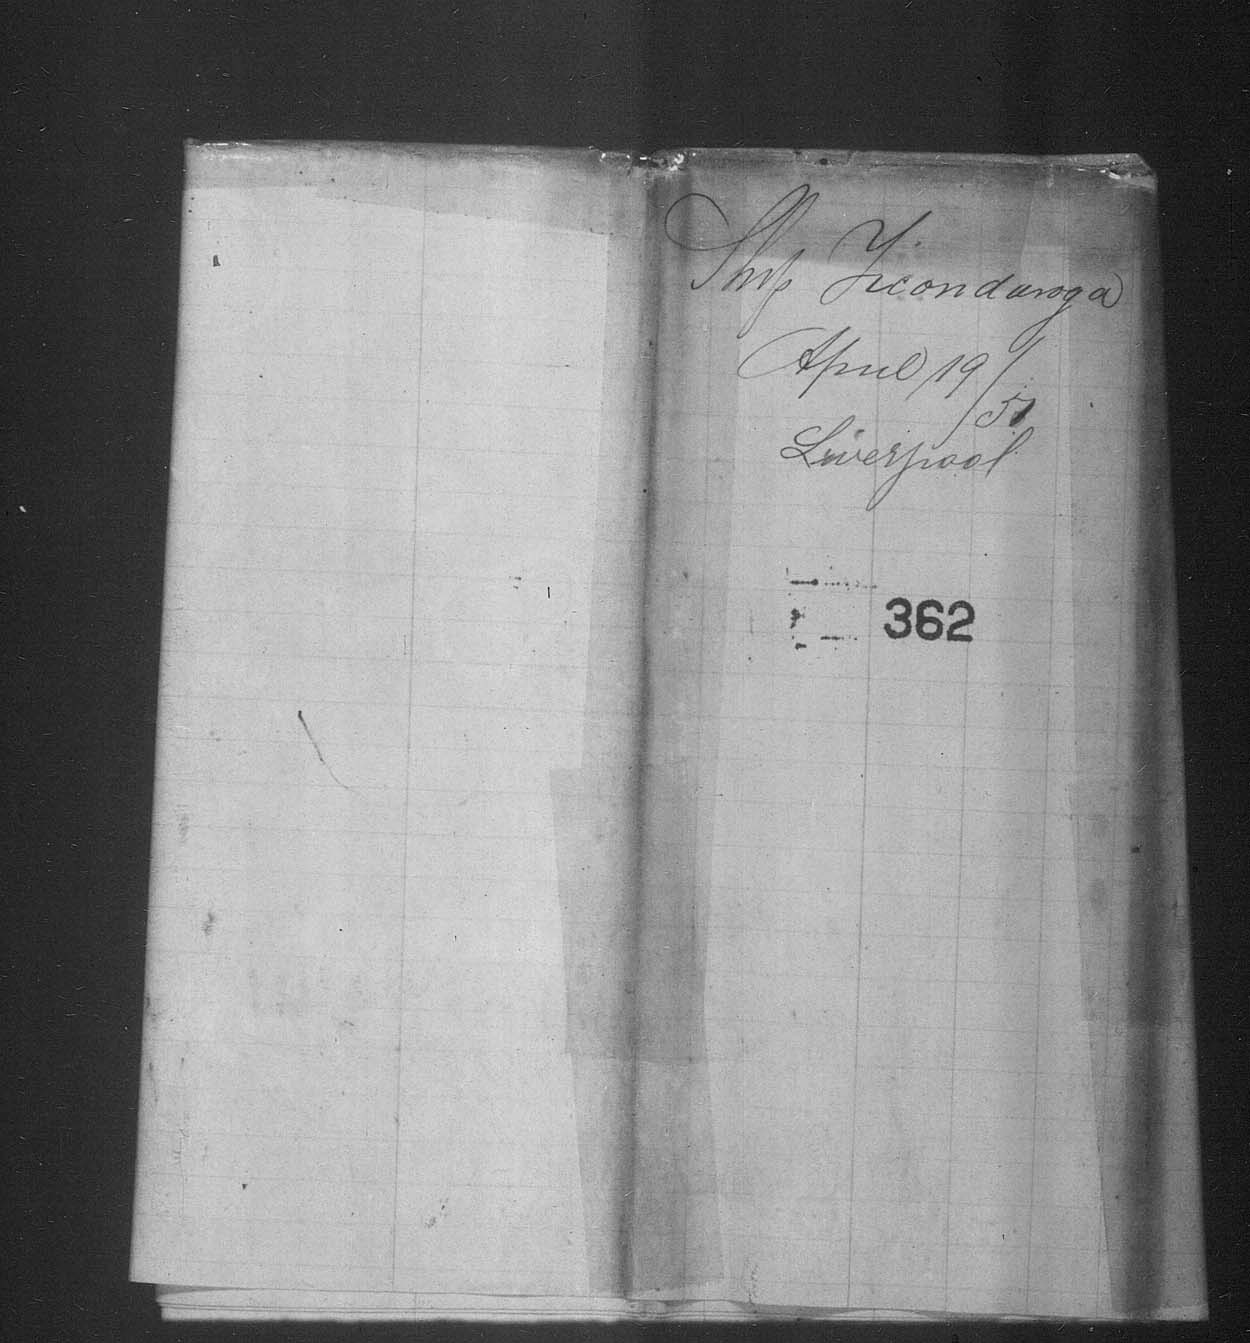 Ship Ticonderoga
April 19/51
Liverpool
362